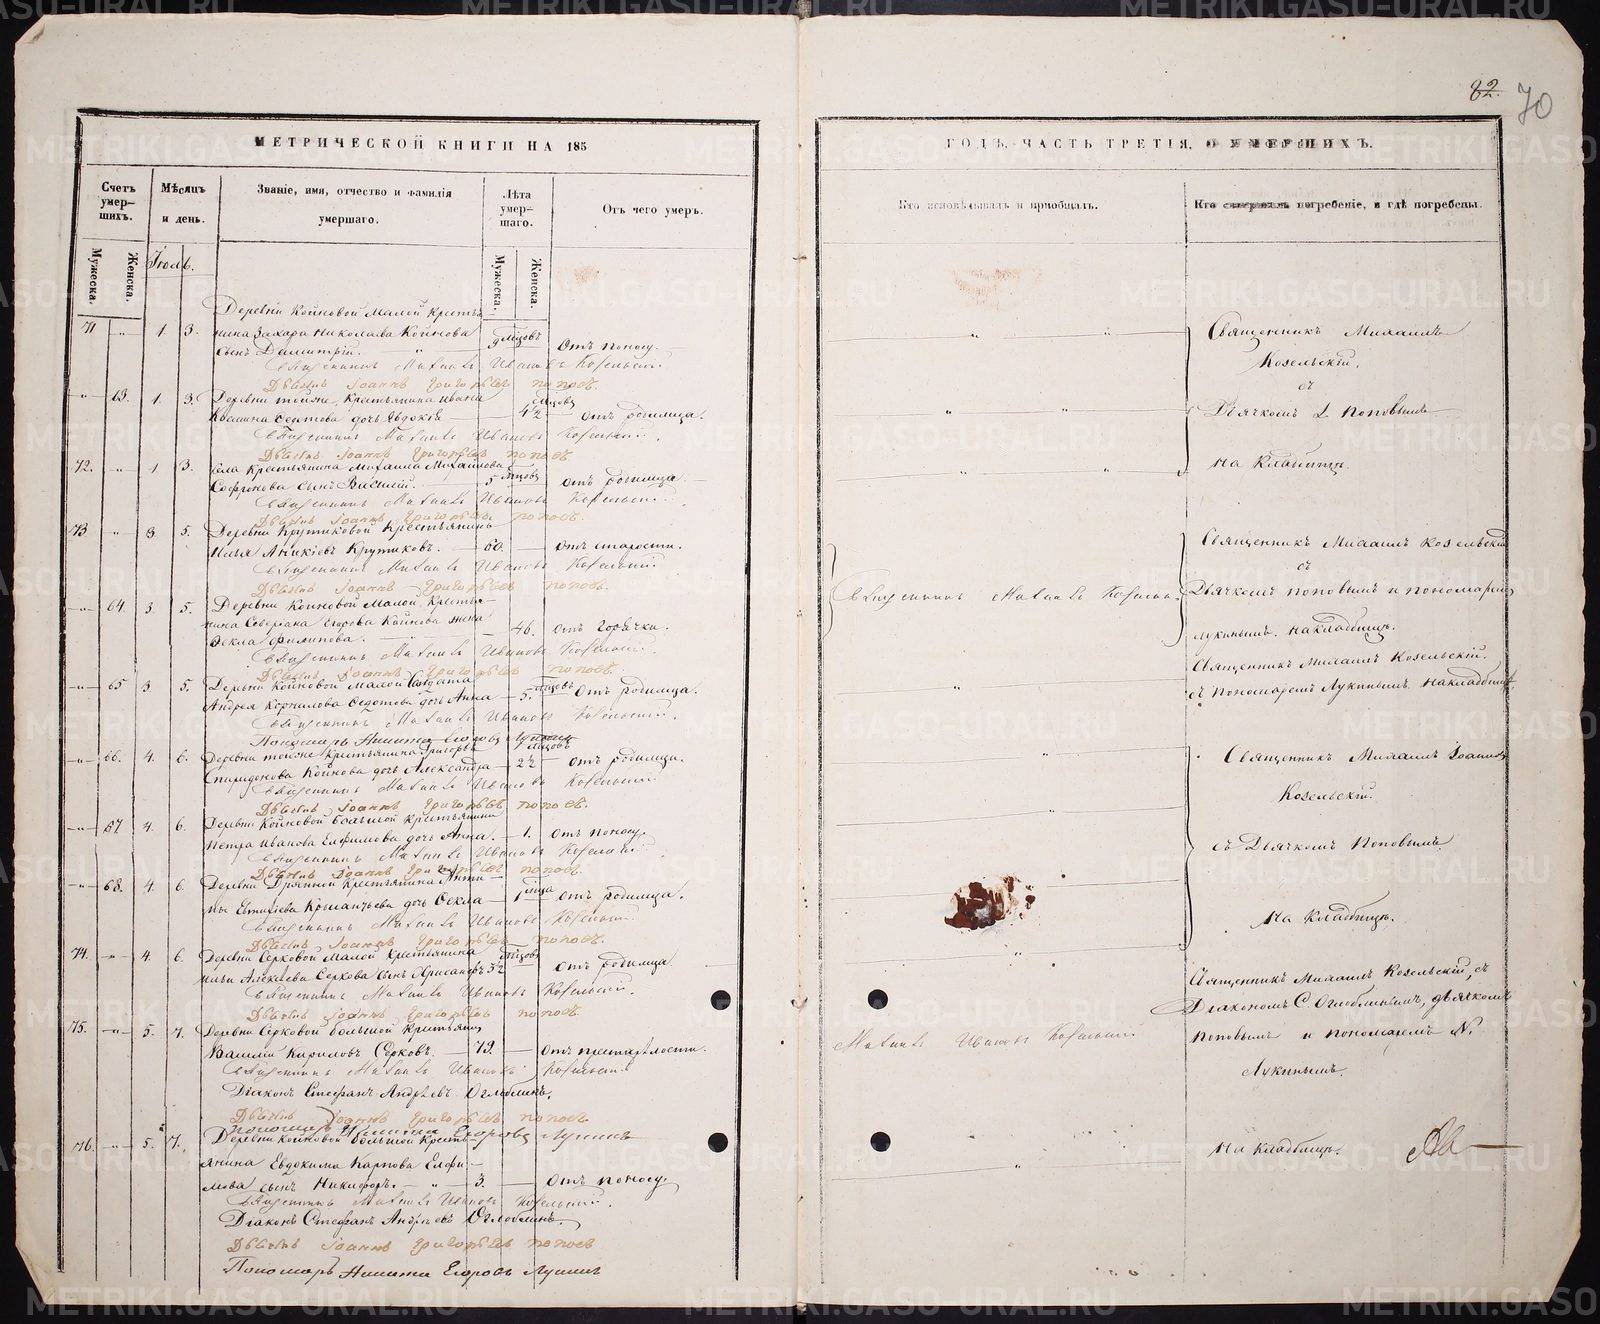 82. 70
МЕТРИЧЕСКОЙ КНИГИ НА 185
Счетъ умерших. Мѣсяцъ и день. Званіе, имя, отчество и фамилія умершаго. Лѣта умершаго. Отъ чего умеръ.
Мужеска. Женска. Мужеска. Женска.
Іюль.
Деревни Койновой Малой кресть
71 " 1. 3. янина Захара Николаева Койнова 9 мѣсцовъ
сынъ Димитрій. " Отъ поносу.
Священникъ Михаилъ Ивановъ Козельскій
Дьячекъ Іоаннъ Григорьевъ Поповъ
" 63. 1. 3. Деревни тойже крестьянина Ивана
дочь Евдокія 4½ мѣсцовъ Отъ родимца.
Священникъ Михаилъ Ивановъ Козельскій.
Дьячекъ Іоаннъ Григорьевъ Поповъ
72. " 1. 3. Села крестьянина Михаила Михайлова
Софронова сынъ Василій. 5 мѣсцовъ Отъ родимца
Священникъ Михаилъ Ивановъ Козельскій
Дьячекъ Іоаннъ Григорьевъ Поповъ.
73 " 3. 5. Деревни Крутиковой крестьянинъ
Илья Аникіевъ Крутиковъ. 60. Отъ старости.
Священникъ Михаилъ Ивановъ Козельскій
Дьячекъ Іоаннъ Григорьевъ Поповъ.
" 64. 3. 5. Деревни Койновой Малой, кресть-
янина Северіана Егорова Койнова жена
Фекла Филипова. 46. Отъ горячки.
Священникъ Михаилъ Ивановъ Козельскій.
Дьячекъ Іоаннъ Григорьевъ Поповъ.
" 65 3. 5. Деревни Койновой Малой Солдата
Андрея Корнилова Федотова дочь Анна 5. мѣсцовъ Отъ родимца.
Священникъ Михаилъ Ивановъ Козельскій.
Пономарь Никита Егоровъ Лукинъ
" 66. 4. 6. Деревни тойже крестьянина Григорья
Спиридонова Койнова дочь Александра 2½ мѣсцовъ Отъ родимца.
Священникъ Михаилъ Ивановъ Козельскій
Дьячекъ Іоаннъ Григорьевъ Поповъ.
" 67 4. 6. Деревни Койновой большой крестьянина
Петра Иванова Елфимова дочь Анна. 1. Отъ поносу.
Священникъ Михаилъ Ивановъ Козельскій
Дьячекъ Іоаннъ Григорьевъ Поповъ.
" 68. 4. 6. Деревни крестьянина Анти-
пы Евтихіева дочь Фекла 1 мѣсца Отъ родимца.
Священникъ Михаилъ Ивановъ Козельскій
Дьячекъ Іоаннъ Григорьевъ Поповъ.
74. " 4. 6. Деревни Серковой Малой крестьянина
Ильи Алексіева Серкова сынъ Хрисанфъ 3½ мѣсцовъ Отъ родимца
Священникъ Михаилъ Ивановъ Козельскій.
Дьячекъ Іоаннъ Григорьевъ Поповъ.
75. " 5. 7. Деревни Серковой большой крестьян.
Василій Кириловъ Серковъ. 79. Отъ престарѣлости.
Священникъ Михаилъ Ивановъ Козельскій
Діаконъ Стефанъ Андреевъ Оглоблинъ.
Дьячекъ Іоаннъ Григорьевъ Поповъ
Пономарь Никита Егоровъ Лукинъ
76. " 5. 7. Деревни Койновой большой кресть-
янина Евдокима Карпова Елфи-
мова сынъ Никифоръ. 3. Отъ поносу.
Священникъ Михаилъ Ивановъ Козельскій
Діаконъ Стефанъ Андреевъ Оглоблинъ.
Дьячекъ Іоаннъ Григорьевъ Поповъ
Пономарь Никита Егоровъ Лукинъ
ГОДЪ, ЧАСТЬ ТРЕТІЯ, О УМЕРШИХЪ.
Кто исповѣдывалъ и пріобщалъ. Кто совершалъ погребеніе, и гдѣ погребены.
Священникъ Михаилъ
Козельскій,
съ
Дьячкомъ І. Поповымъ
на кладбищѣ.
Священникъ Михаилъ Козельскій
съ
Священникъ Михаилъ Козельскій. Дьячкомъ Поповымъ и пономаремъ
Лукинымъ. на кладбищѣ.
Священникъ Михаилъ Козельскій.
съ Пономаремъ Лукинымъ. на кладбищѣ.
Священникъ Михаилъ Іоанновъ
Козельскій.
съ Дьячкомъ Поповымъ.
На кладбищѣ.
Священникъ Михаилъ Козельскій, съ
Діакономъ С. Оглоблинымъ, дьячкомъ
Михаилъ Ивановъ Козельскій Поповымъ и пономаремъ Н.
Лукинымъ.
На кладбищѣ.
METRIKI.GASO-URAL.RU